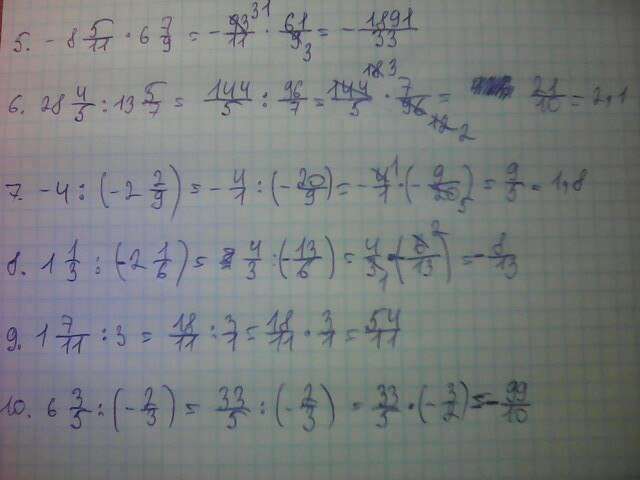 5. -8 5/11 · 6 7/9 = -93 31/11 · 61/9 3 = -1891/33
6. 28 4/5 : 13 5/7 = 144/5 : 96/7 = 144 18 3/5 · 7/96 12 2 = 21/10 = 2,1
7. -4 : (-2 2/9) = -4/1 : (-20/9) = -4 1/1 · (-9/20 5) = 9/5 = 1,8
8. 1 1/3 : (-2 1/6) = 4/3 : (-13/6) = 4/3 1 · (-6 2/13) = -8/13
9. 1 7/11 : 3 = 18/11 : 3/1 = 18/11 · 3/1 = 54/11
10. 6 3/5 : (-2/3) = 33/5 : (-2/3) = 33/5 · (-3/2) = -99/10